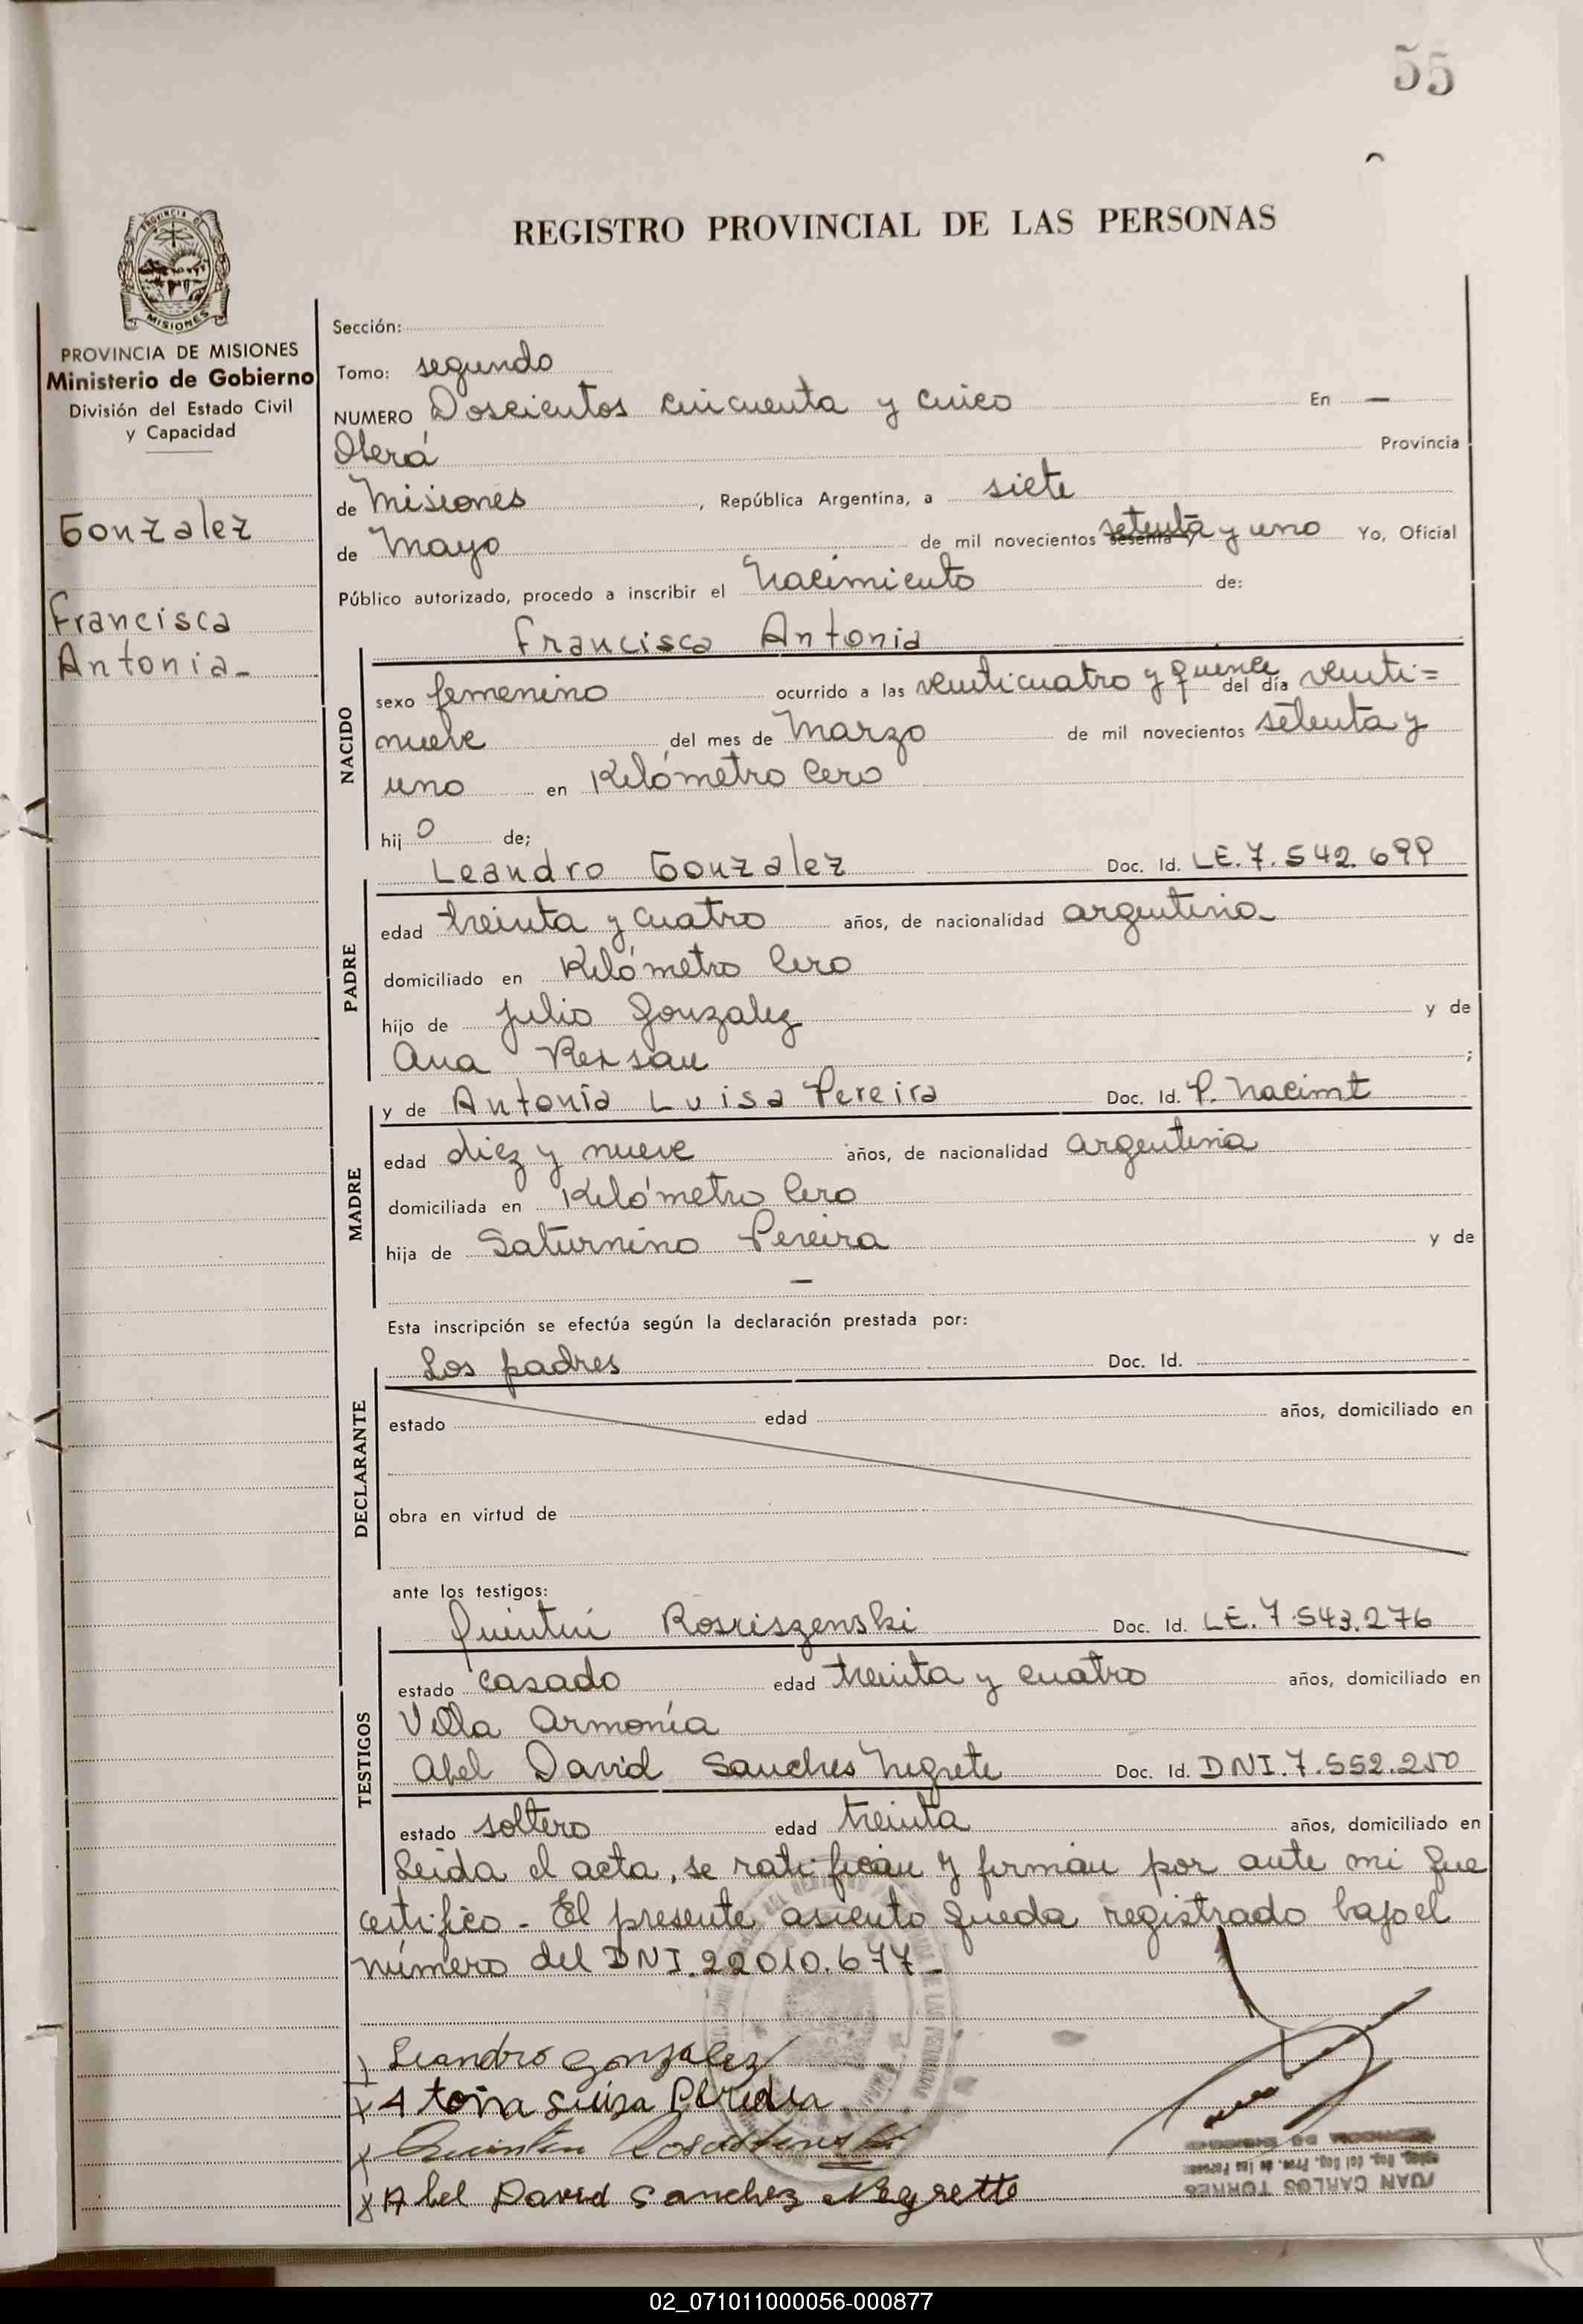 55
REGISTRO PROVINCIAL DE LAS PERSONAS
PROVINCIA DE MISIONES
Ministerio de Gobierno
División del Estado Civil
y Capacidad
Gonzalez
Francisca
Antonia-
Sección:
Tomo: segundo
NUMERO Doscientos cincuenta y cinco En —
Oberá Provincia
de Misiones, República Argentina, a siete
de Mayo de mil novecientos setenta y uno Yo, Oficial
Público autorizado, procedo a inscribir el Nacimiento de:
Francisca Antonia
NACIDO
sexo femenino ocurrido a las veinticuatro y quince del día veinti=
nueve del mes de Marzo de mil novecientos setenta y
uno en Kilómetro Cero
hij o de;
Leandro Gonzalez Doc. Id. LE.7.542.699
PADRE
edad treinta y cuatro años, de nacionalidad argentina
domiciliado en Kilómetro Cero
hijo de Julio Gonzalez y de
Ana ;
y de Antonia Luisa Pereira Doc. Id. P. Nacimt
MADRE
edad diez y nueve años, de nacionalidad argentina
domiciliada en Kilómetro Cero
hija de Saturnino Pereira y de
—
Esta inscripción se efectúa según la declaración prestada por:
Los padres Doc. Id.
DECLARANTE
estado edad años, domiciliado en
obra en virtud de
ante los testigos:
Quintin Doc. Id. LE.7.543.276
TESTIGOS
estado casado edad treinta y cuatro años, domiciliado en
Villa Armonía
Abel David Sanches Negrete Doc. Id. DNI.7.552.250
estado soltero edad treinta años, domiciliado en
Leida el acta, se ratifican y firman por ante mi que
certifico - El presente asiento queda registrado bajo el
número del DNI.22010.677-
Leandro Gonzalez
Quintin
Abel David Sanchez Negrette
JUAN CARLOS TORRES
02_071011000056-000877